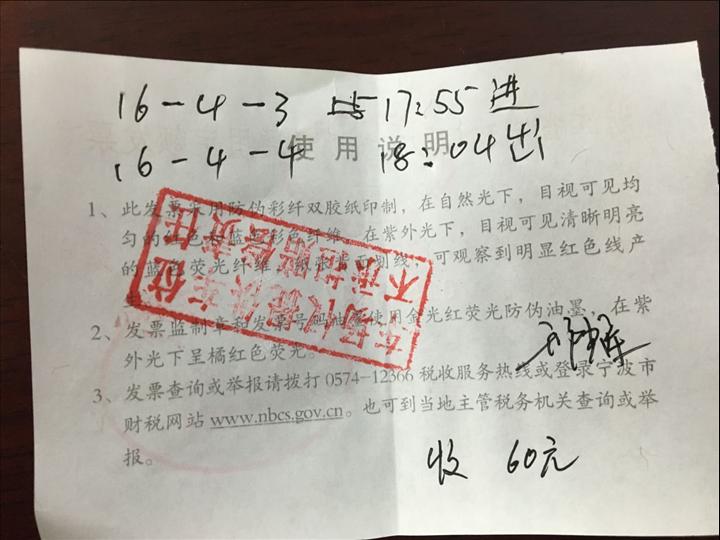 16-4-3 17:55进
使用说明
16-4-4 18:04出
1、此发票采用防伪彩纤双胶纸印制，在自然光下，目视可见均
匀的红色和蓝色彩色纤维，在紫外光下，目视可见清晰明亮
的蓝色荧光纤维。纸张背面划线，可观察到明显红色线产
2、发票监制章和发票号码油墨使用金光红荧光防伪油墨，在紫
外光下呈橘红色荧光。
3、发票查询或举报请拨打 0574-12366 税收服务热线或登录宁波市
财税网站 www.nbcs.gov.cn。也可到当地主管税务机关查询或举
报。
收 60元